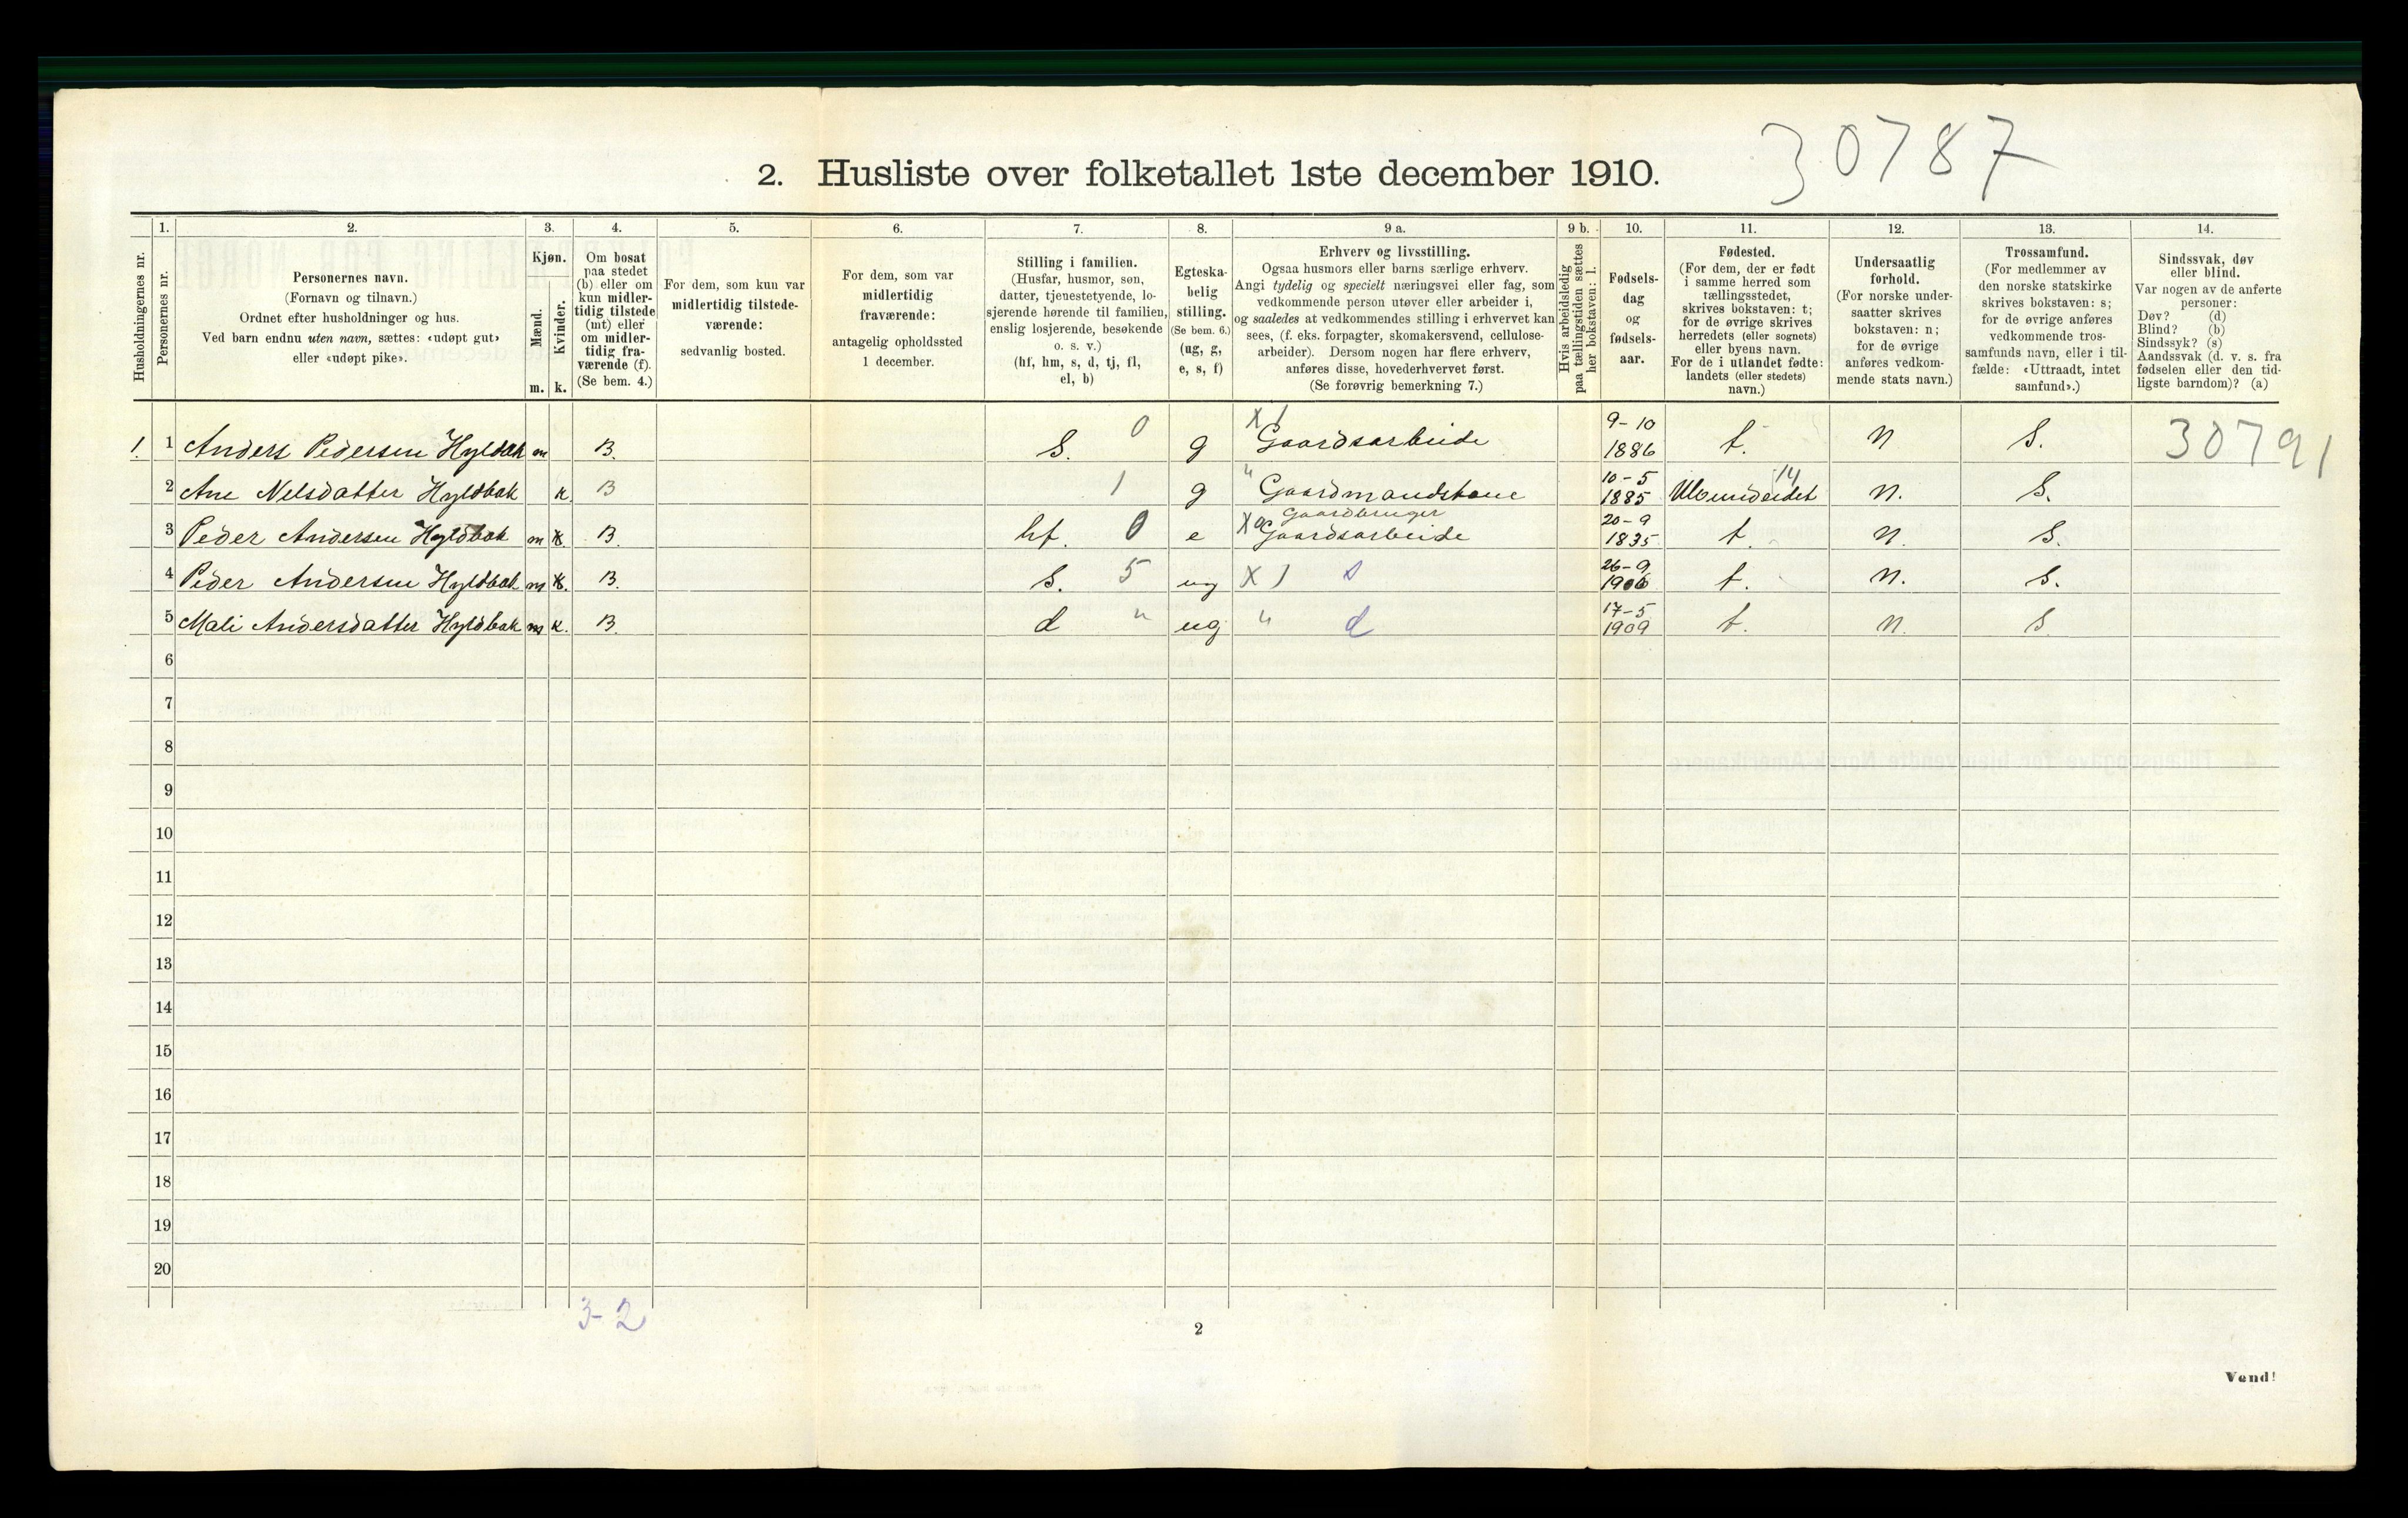 30787
2. Husliste over folketallet 1ste december 1910.
Husholdningernes nr.
1.
Personernes nr.
2.
Personernes navn.
(Fornavn og tilnavn.)
Ordnet efter husholdninger og hus.
Ved barn endnu uten navn, sættes: «udøpt gut»
eller «udøpt pike».
3.
Kjøn.
Mænd.
m.
Kvinder.
k.
4.
Om bosat
paa stedet
(b) eller om
kun midler-
tidig tilstede
(mt) eller
om midler-
tidig fra-
værende (f).
(Se bem. 4.)
5.
For dem, som kun var
midlertidig tilstede-
værende:
sedvanlig bosted.
6.
For dem, som var
midlertidig
fraværende:
antagelig opholdssted
1 december.
7.
Stilling i familien.
(Husfar, husmor, søn,
datter, tjenestetyende, lo-
sjerende hørende til familien,
enslig losjerende, besøkende
o. s. v.)
(hf, hm, s, d, tj, fl,
el, b)
8.
Egteska-
belig
stilling.
(Se bem. 6.)
(ug, g,
e, s, f)
9 a.
Erhverv og livsstilling.
Ogsaa husmors eller barns særlige erhverv.
Angi tydelig og specielt næringsvei eller fag, som
vedkommende person utøver eller arbeider i,
og saaledes at vedkommendes stilling i erhvervet kan
sees, (f. eks. forpagter, skomakersvend, cellulose-
arbeider). Dersom nogen har flere erhverv,
anføres disse, hovederhvervet først.
(Se forøvrig bemerkning 7.)
9 b.
Hvis arbeidsledig
paa tællingstiden sættes
her bokstaven: l.
10.
Fødsels-
dag
og
fødsels-
aar.
11.
Fødested.
(For dem, der er født
i samme herred som
tællingsstedet,
skrives bokstaven: t;
for de øvrige skrives
herredets (eller sognets)
eller byens navn.
For de i utlandet fødte:
landets (eller stedets)
navn.)
12.
Undersaatlig
forhold.
(For norske under-
saatter skrives
bokstaven: n;
for de øvrige
anføres vedkom-
mende stats navn.)
13.
Trossamfund.
(For medlemmer av
den norske statskirke
skrives bokstaven: s;
for de øvrige anføres
vedkommende tros-
samfunds navn, eller i til-
fælde: «Uttraadt, intet
samfund».)
14.
Sindssvak, døv
eller blind.
Var nogen av de anførte
personer:
Døv? (d)
Blind? (b)
Sindssyk? (s)
Aandssvak (d. v. s. fra
fødselen eller den tid-
ligste barndom)? (a)
1. 1 Anders Pedersen Hyldbak m B. S. 0 g X 1 Gaardsarbeide 9-10 1886 t. n S. 30791
2 Ane Nelsdatter Hyldbak k. B 1 g " Gaardmandskone 10-5 1885 14 n. S.
3 Peder Andersen Hyldbak m k. B. hf. 0 e X Gaardbruger Gaardsarbeide 20-9 1835 t. n. S.
4 Peder Andersen Hyldbak m k. B. S. 5 ug X 1 s 26-9 1906 t. n. S.
5 Mali Andersdatter Hyldbak m k. B. d " ug " d 17-5 1909 t. n. S
6
7
8
9
10
11
12
13
14
15
16
17
18
19
20
3-2
2
Vend!